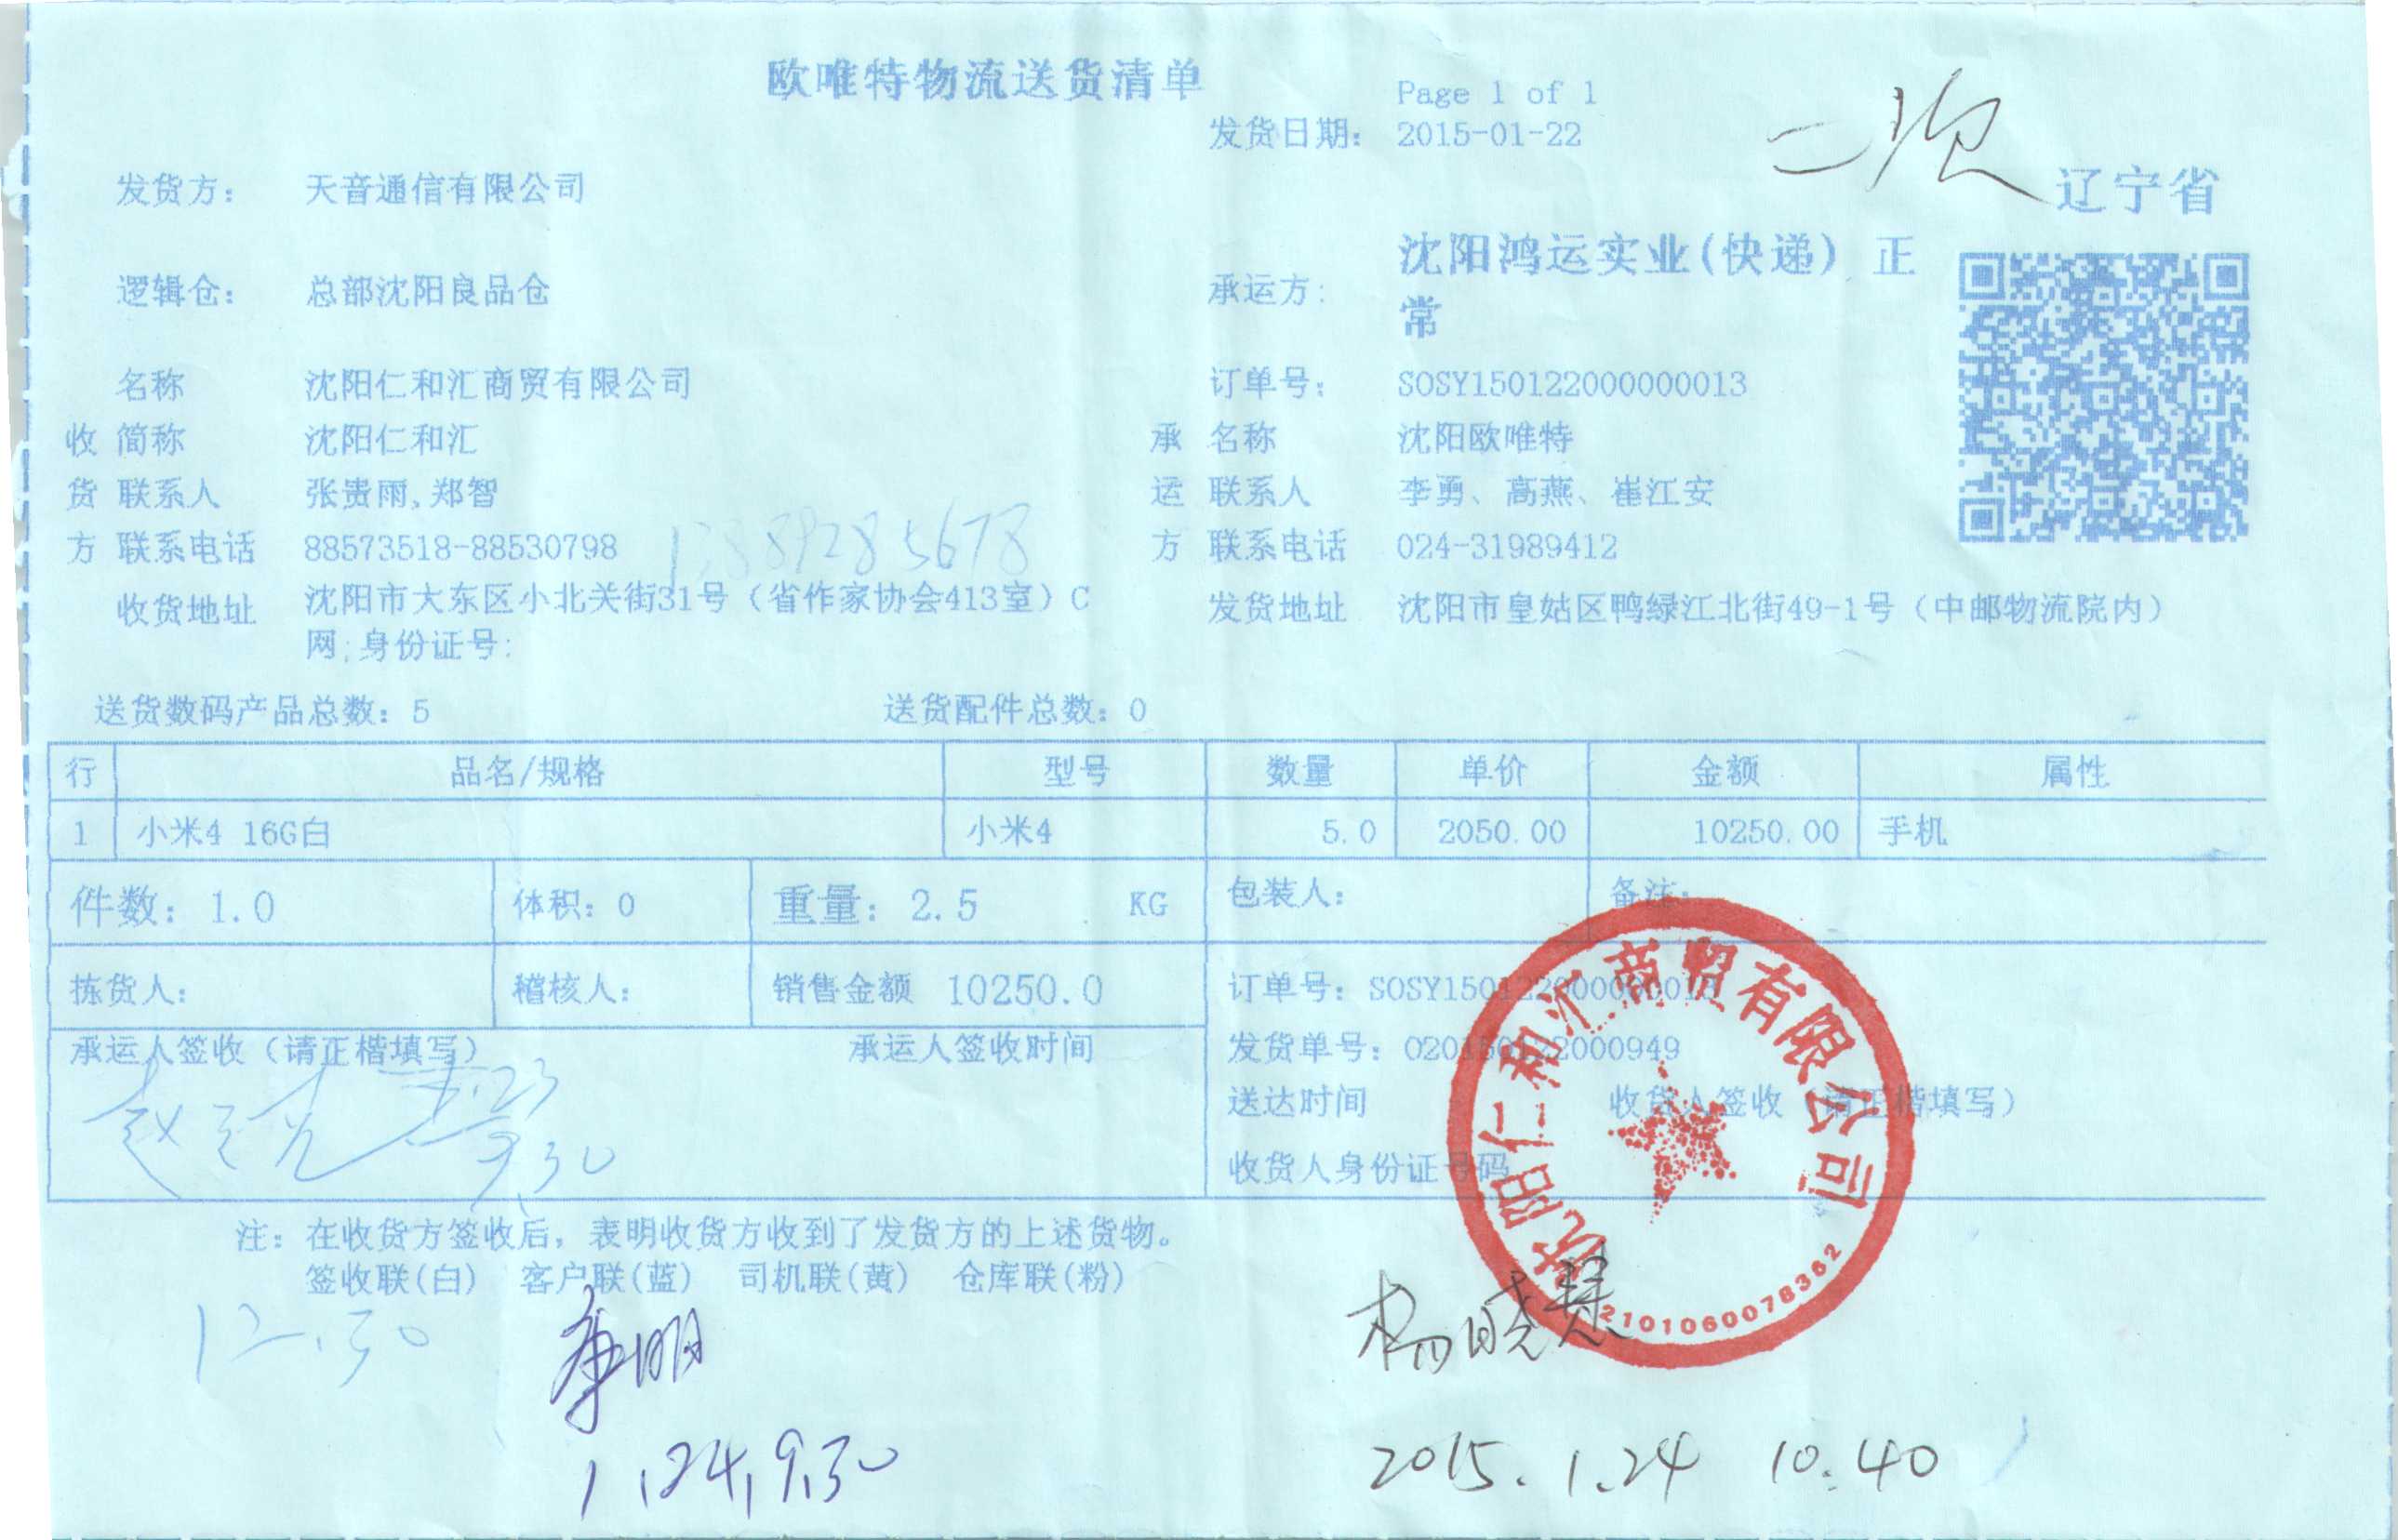 欧唯特物流送货清单
Page 1 of 1
发货日期: 2015-01-22
二次
辽宁省
发货方: 天音通信有限公司
逻辑仓: 总部沈阳良品仓
承运方: 沈阳鸿运实业(快递) 正
常
名称 沈阳仁和汇商贸有限公司 订单号: SOSY150122000000013
收 简称 沈阳仁和汇 承 名称 沈阳欧唯特
货 联系人 张贵雨,郑智 运 联系人 李勇、高燕、崔江安
方 联系电话 88573518-88530798 13889285678 方 联系电话 024-31989412
收货地址 沈阳市大东区小北关街31号（省作家协会413室）C
网;身份证号:
发货地址 沈阳市皇姑区鸭绿江北街49-1号（中邮物流院内）
送货数码产品总数: 5 送货配件总数: 0
行 品名/规格 型号 数量 单价 金额 属性
1 小米4 16G白 小米4 5.0 2050.00 10250.00 手机
件数: 1.0 体积: 0 重量: 2.5 KG 包装人: 备注:
拣货人: 稽核人: 销售金额 10250.0 订单号: SOSY150122000000013
承运人签收（请正楷填写） 承运人签收时间 发货单号: 020150122000949
送达时间 收货人签收（请正楷填写）
1.23
9.30
收货人身份证号码
沈阳仁和汇商贸有限公司
2101060078362
注: 在收货方签收后, 表明收货方收到了发货方的上述货物。
签收联(白) 客户联(蓝) 司机联(黄) 仓库联(粉)
12.30
康明
杨晓慧
1.24,9.30
2015.1.24 10.40